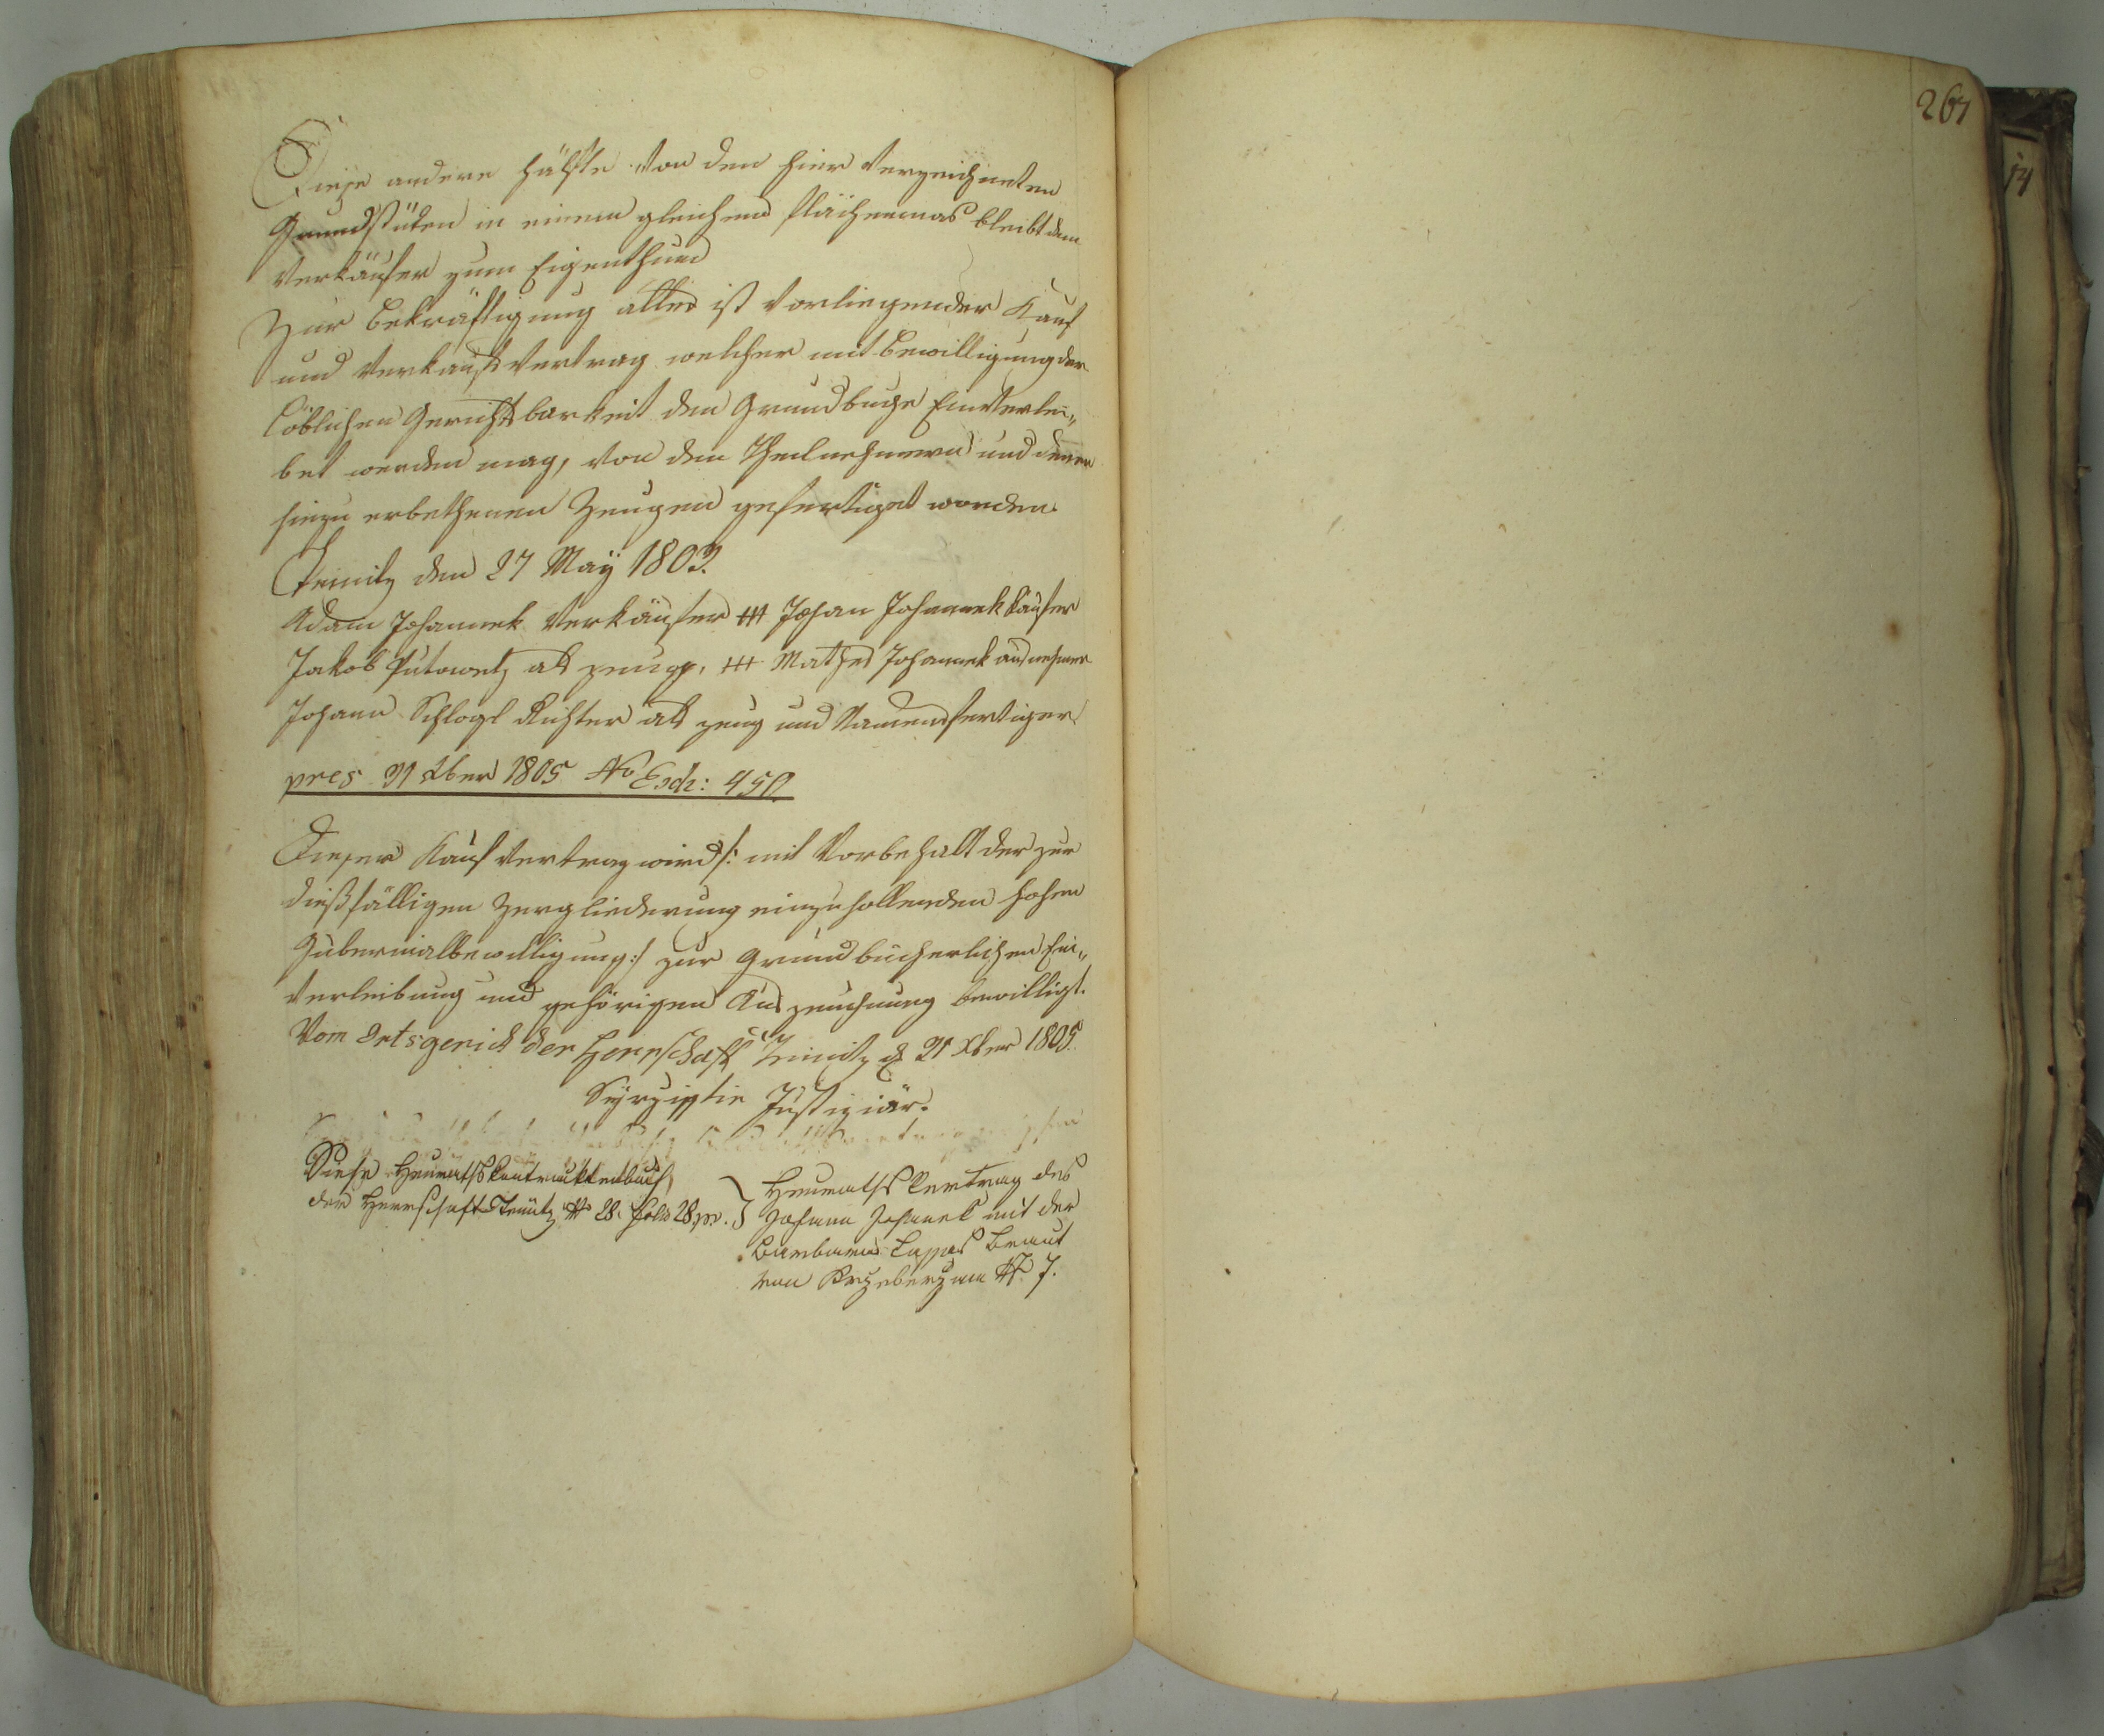 Diese andere Hälfte von den hier verzeichneten
Grundstüken in einem gleichen Flächenmas bleibt dem
Verkäufer zum Eigenthum
Zur Bekräftigung alles ist vorliegender Kauf
und Verkaufs Vertrag welcher mit Bewilligung der
Löblichen Gerichtsbarkeit den Grundbuche Einverlei„
bet werden mag, von den Theilnehmern und denen
hiezu erbethenen Zeugen gefertiget worden.
Teinitz den 27 May 1803.
Adam Johannek Verkäufer +++ Johan Johannek Käufer
Jakob Putowetz als Zeuge, +++ Mathes Johannek Ausnehmer
Johann Schlogl Richter als Zeug und Namensfertiger
pres 31 Xber 1805 No Exh: 450.
Dieser Kauf Vertrag wird /: mit Vorbehalt der zur
dießfälligen Zergliederung einzuhollenden hohen
Gubernialbewilligung :/ zur Grundbücherlichen Ein„
verleibung und gehörigen Auszeichnung bewilligt.
Vom Ortsgericht der Herrschaft Teinitz d 31 Xber 1805.
Justiziär.
Siehe Heuraths Kontraktenbuch
der Herrschaft Teinitz No 28. Folio 28 pv. }
Heuraths Vertrag des
Johann Johanek mit der
Barbara Braut
von No 7.
267
14